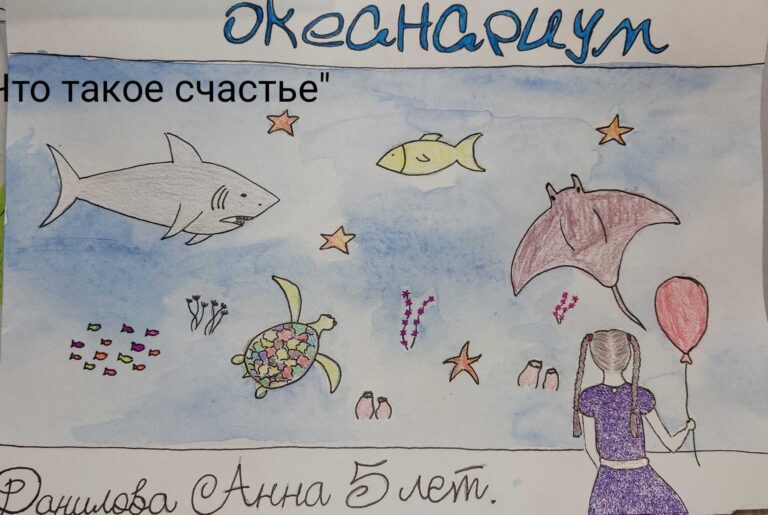 океанариум
что такое счастье"
Данилова Анна 5 лет.